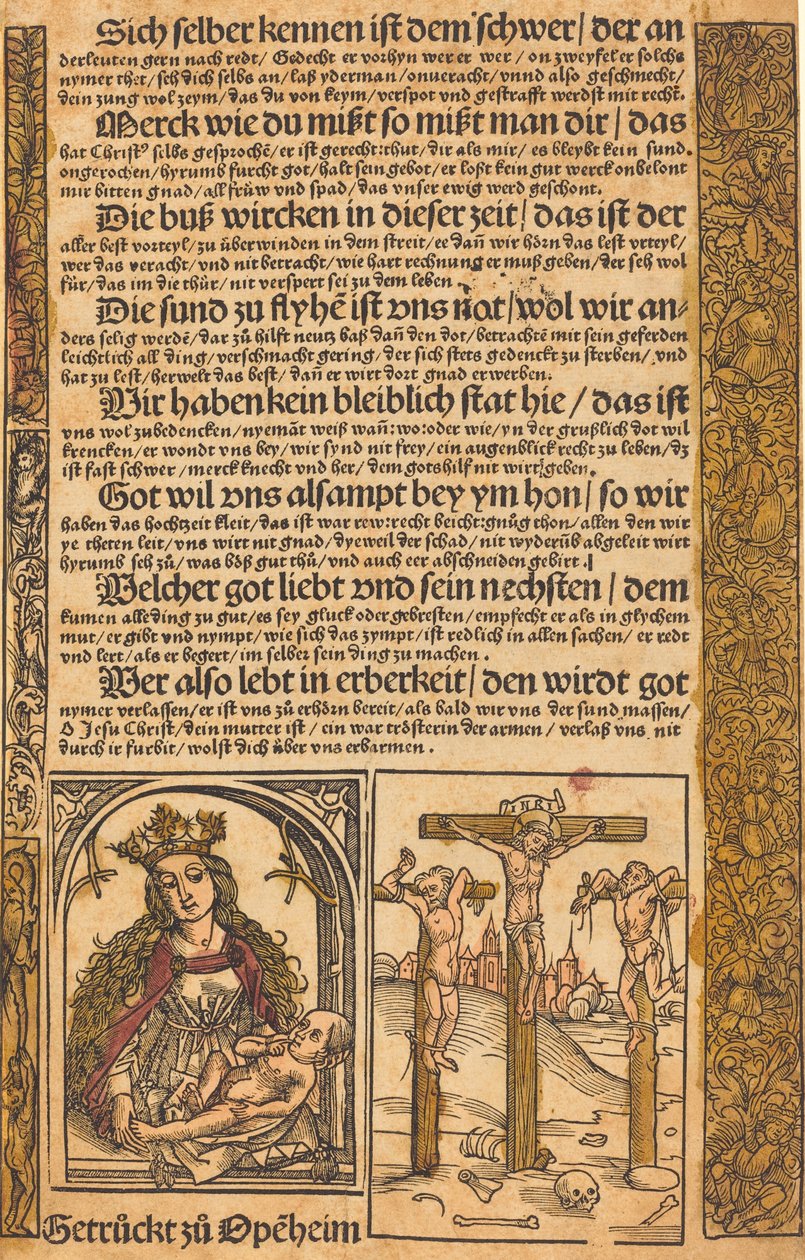 Sich selber kennen ist dem schwer/ der an
derleuten gern nach redt/ Gedecht er vorhyn wer er wer/ on zweyfel er solchs
nymer thet/ seh dich selbs an/ laß yderman/ onueracht/ vnnd also geschmecht/
dein zung wol zeym/ das du von keym/ verspot vnd gestrafft werdst mit recht.
Merck wie du mißt so mißt man dir/ das
hat Christꝰ selbs gesprochē/ er ist gerecht: thut/ dir als mir/ es bleybt kein sund.
ongerochen/ hyrumb furcht got/ halt sein gebot/ er loßt kein gut werck onbelont
mir bitten gnad/ all früw vnd spad/ das vnser ewig werd geschont.
Die buß wircken in dieser zeit/ das ist der
aller best vorteyl/ zu überwinden in dem streit/ ee dañ wir hörn das lest vrteyl/
wer das veracht/ vnd nit betracht/ wie hart rechnung er muß geben/ der seh wol
für/ das im die thür/ nit verspert sei zu dem leben.
Die sund zu flyhē ist vns not/ wol wir an-
ders selig werdē/ dar zů hilft neutz baß dañ den dot/ betrachtē mit sein geferden
leichtlich all ding/ verschmacht gering/ der sich stets gedenckt zu sterben/ vnd
hat zu lest/ herwelt das best/ dañ er wirt dort gnad erwerben.
Wir haben kein bleiblich stat hie/ das ist
vns wol zubedencken/ nyemāt weiß wañ: wo: oder wie/ yn der grußlich dot wil
krencken/ er wondt vns bey/ wir synd nit frey/ ein augenblick recht zu leben/ dz
ist fast schwer/ merck knecht vnd her/ dem gots hilf nit wirt geben.
Got wil vns alsampt bey ym hon/ so wir
haben das hochtzeit kleit/ das ist war rew: recht beicht: gnůg thon/ allen den wir
ye theten leit/ vns wirt nit gnad/ dyeweil der schad/ nit wyderūb abgeleit wirt
hyrumb seh zů/ was böß gut thů/ vnd auch eer abschneiden gebirt.
Welcher got liebt vnd sein nechsten/ dem
kumen alle ding zu gut/ es sey gluck oder gebresten/ empfecht er als in glychem
mut/ er gibt vnd nympt/ wie sich das zympt/ ist redlich in allen sachen/ er redt
vnd lert/ als er begert/ im selber sein ding zu machen.
Wer also lebt in erberkeit/ den wirdt got
nymer verlassen/ er ist vns zů erhörn bereit/ als bald wir vns der sund massen/
O Jesu Christ/ dein mutter ist/ ein war trösterin der armen/ verlaß vns nit
durch ir furbit/ wolst dich über vns erbarmen.
INRI
Getrůckt zů Opēheim